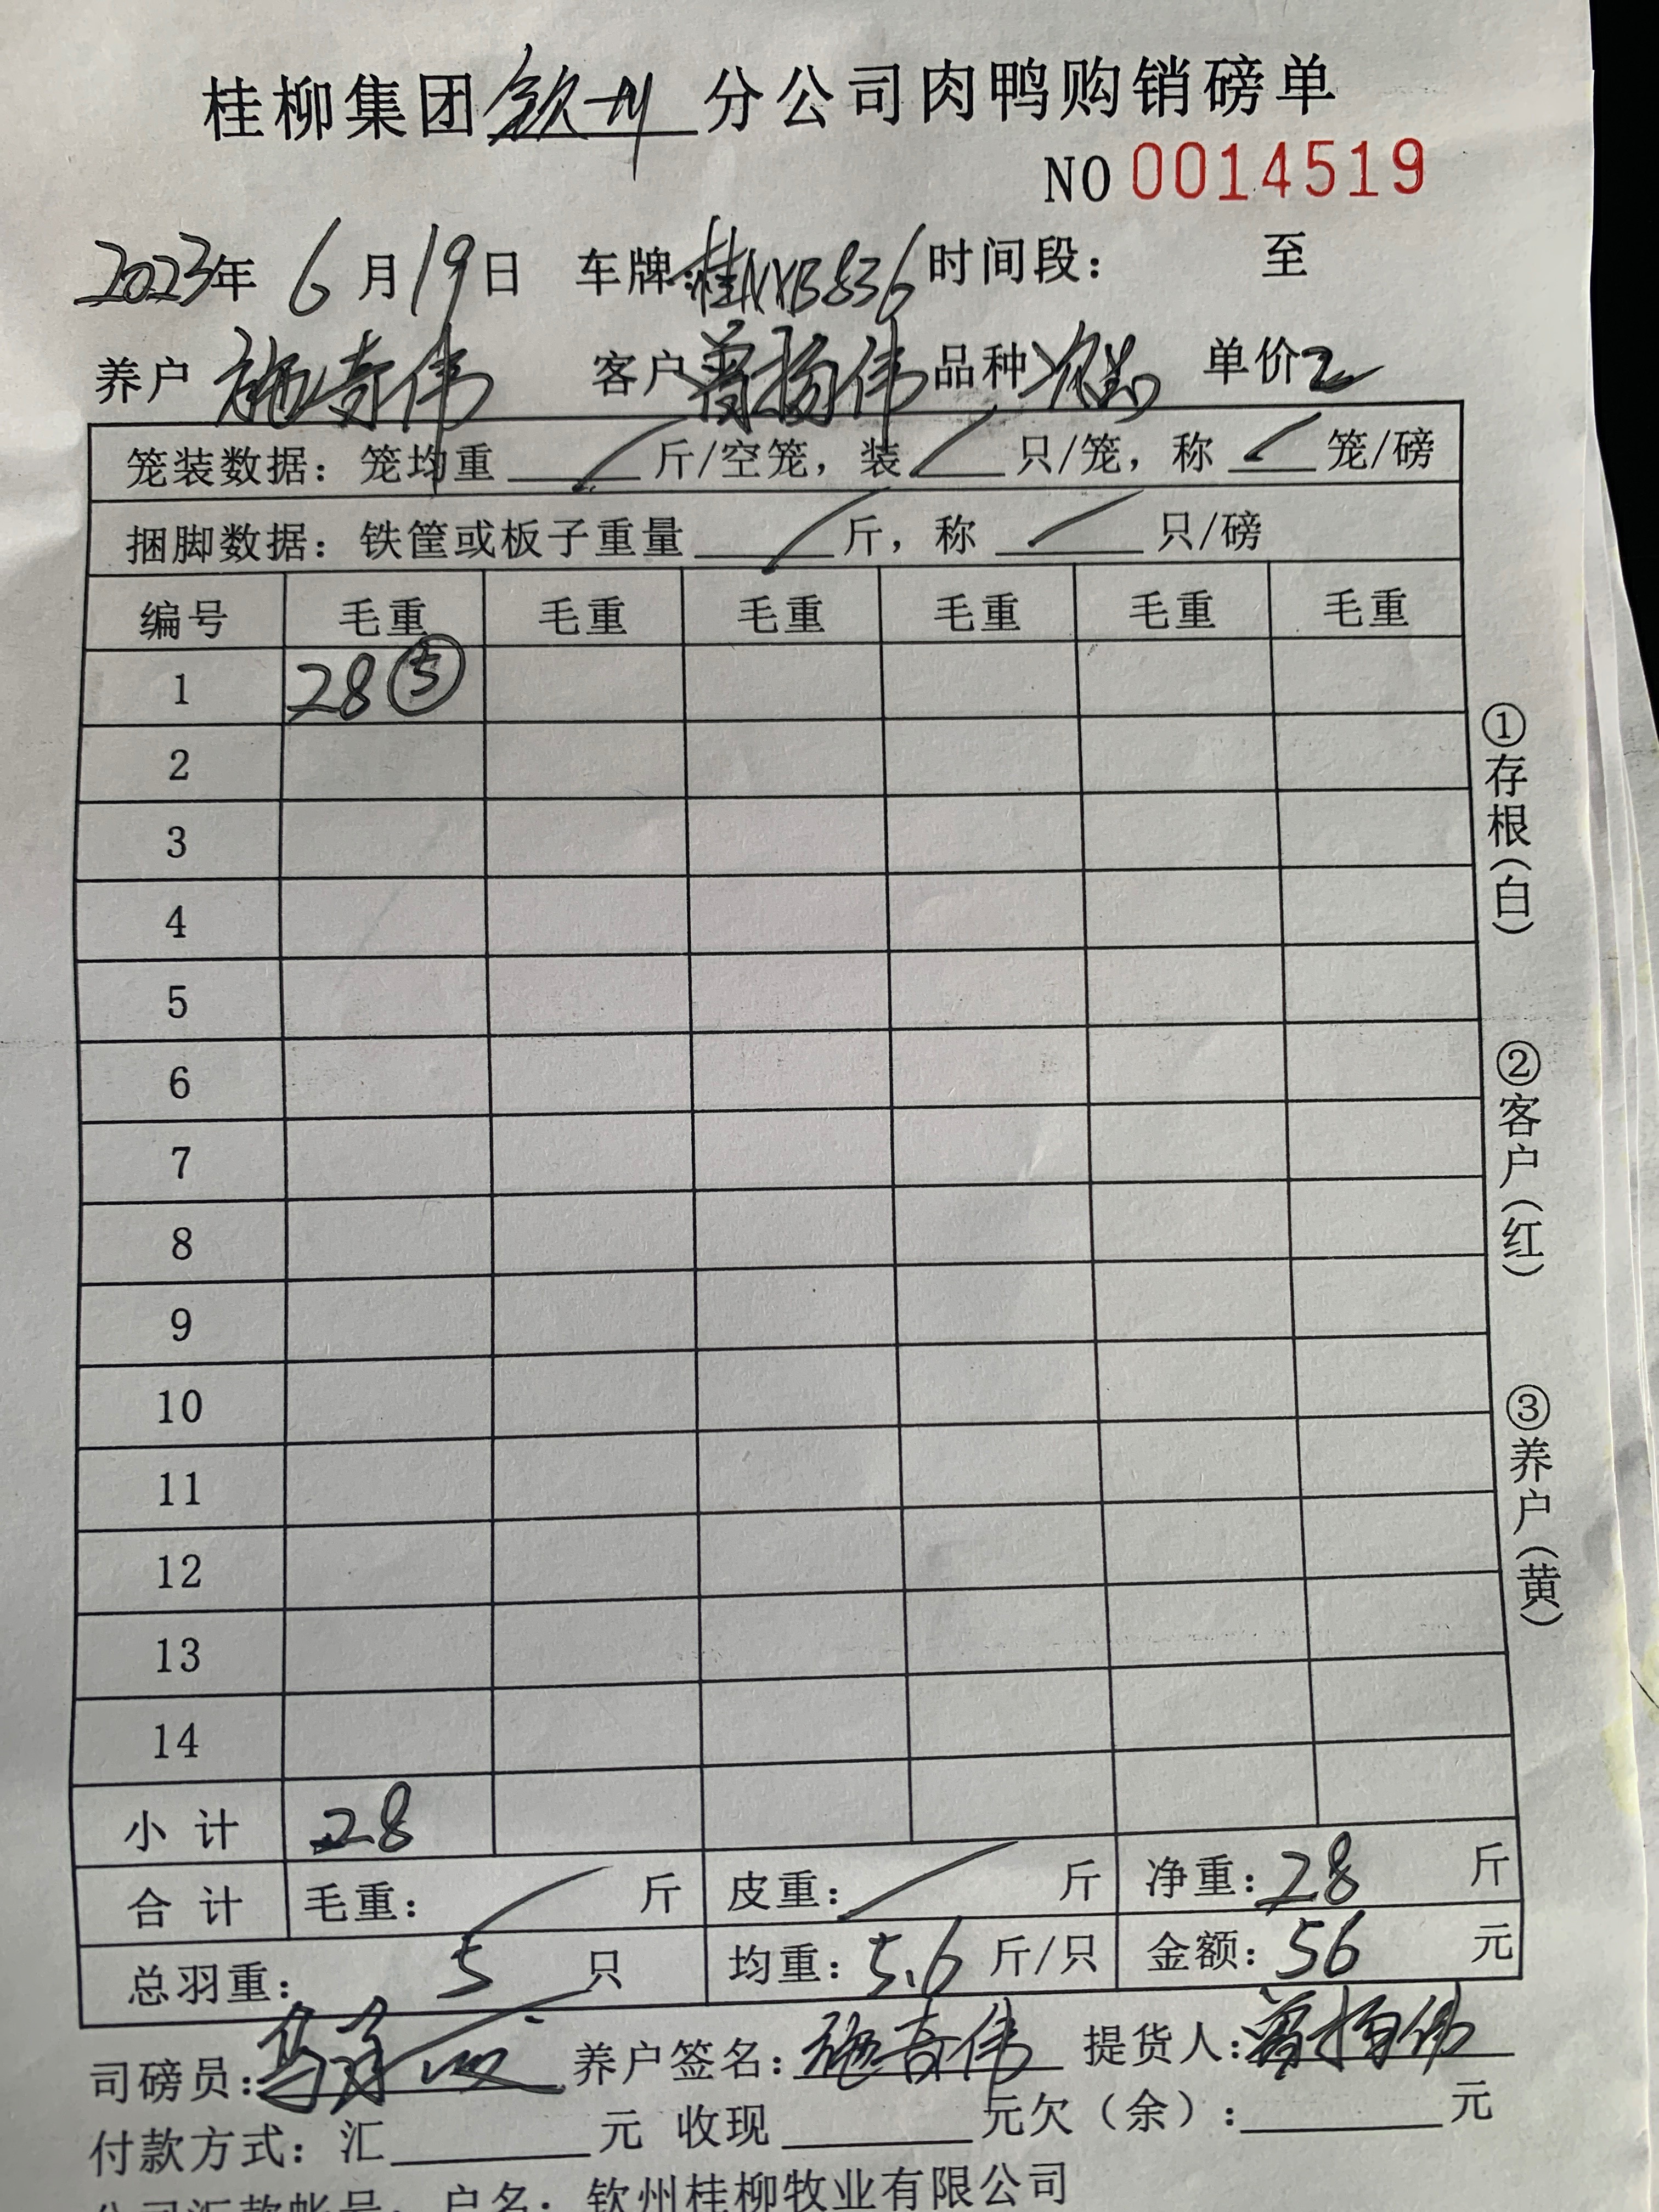 桂柳集团钦州分公司肉鸭购销磅单
NO 0014519
2023年 6月19日 车牌:桂NYB836 时间段: 至
养户 施奇伟 客户 曾扬伟 品种 单价2
笼装数据: 笼均重 / 斤/空笼, 装 / 只/笼, 称 / 笼/磅
捆脚数据: 铁筐或板子重量 / 斤, 称 / 只/磅
编号 毛重 毛重 毛重 毛重 毛重 毛重
1 28⑤
2
3
4
5
6
7
8
9
10
11
12
13
14
小 计 28
合 计 毛重: / 斤 皮重: / 斤 净重: 28 斤
总羽重: 5 只 均重: 5.6 斤/只 金额: 56 元
司磅员: 养户签名: 施奇伟 提货人: 曾扬伟
付款方式: 汇 元 收现 元欠(余): 元
公司汇款帐号: 户名: 钦州桂柳牧业有限公司
①存根(白)
②客户(红)
③养户(黄)